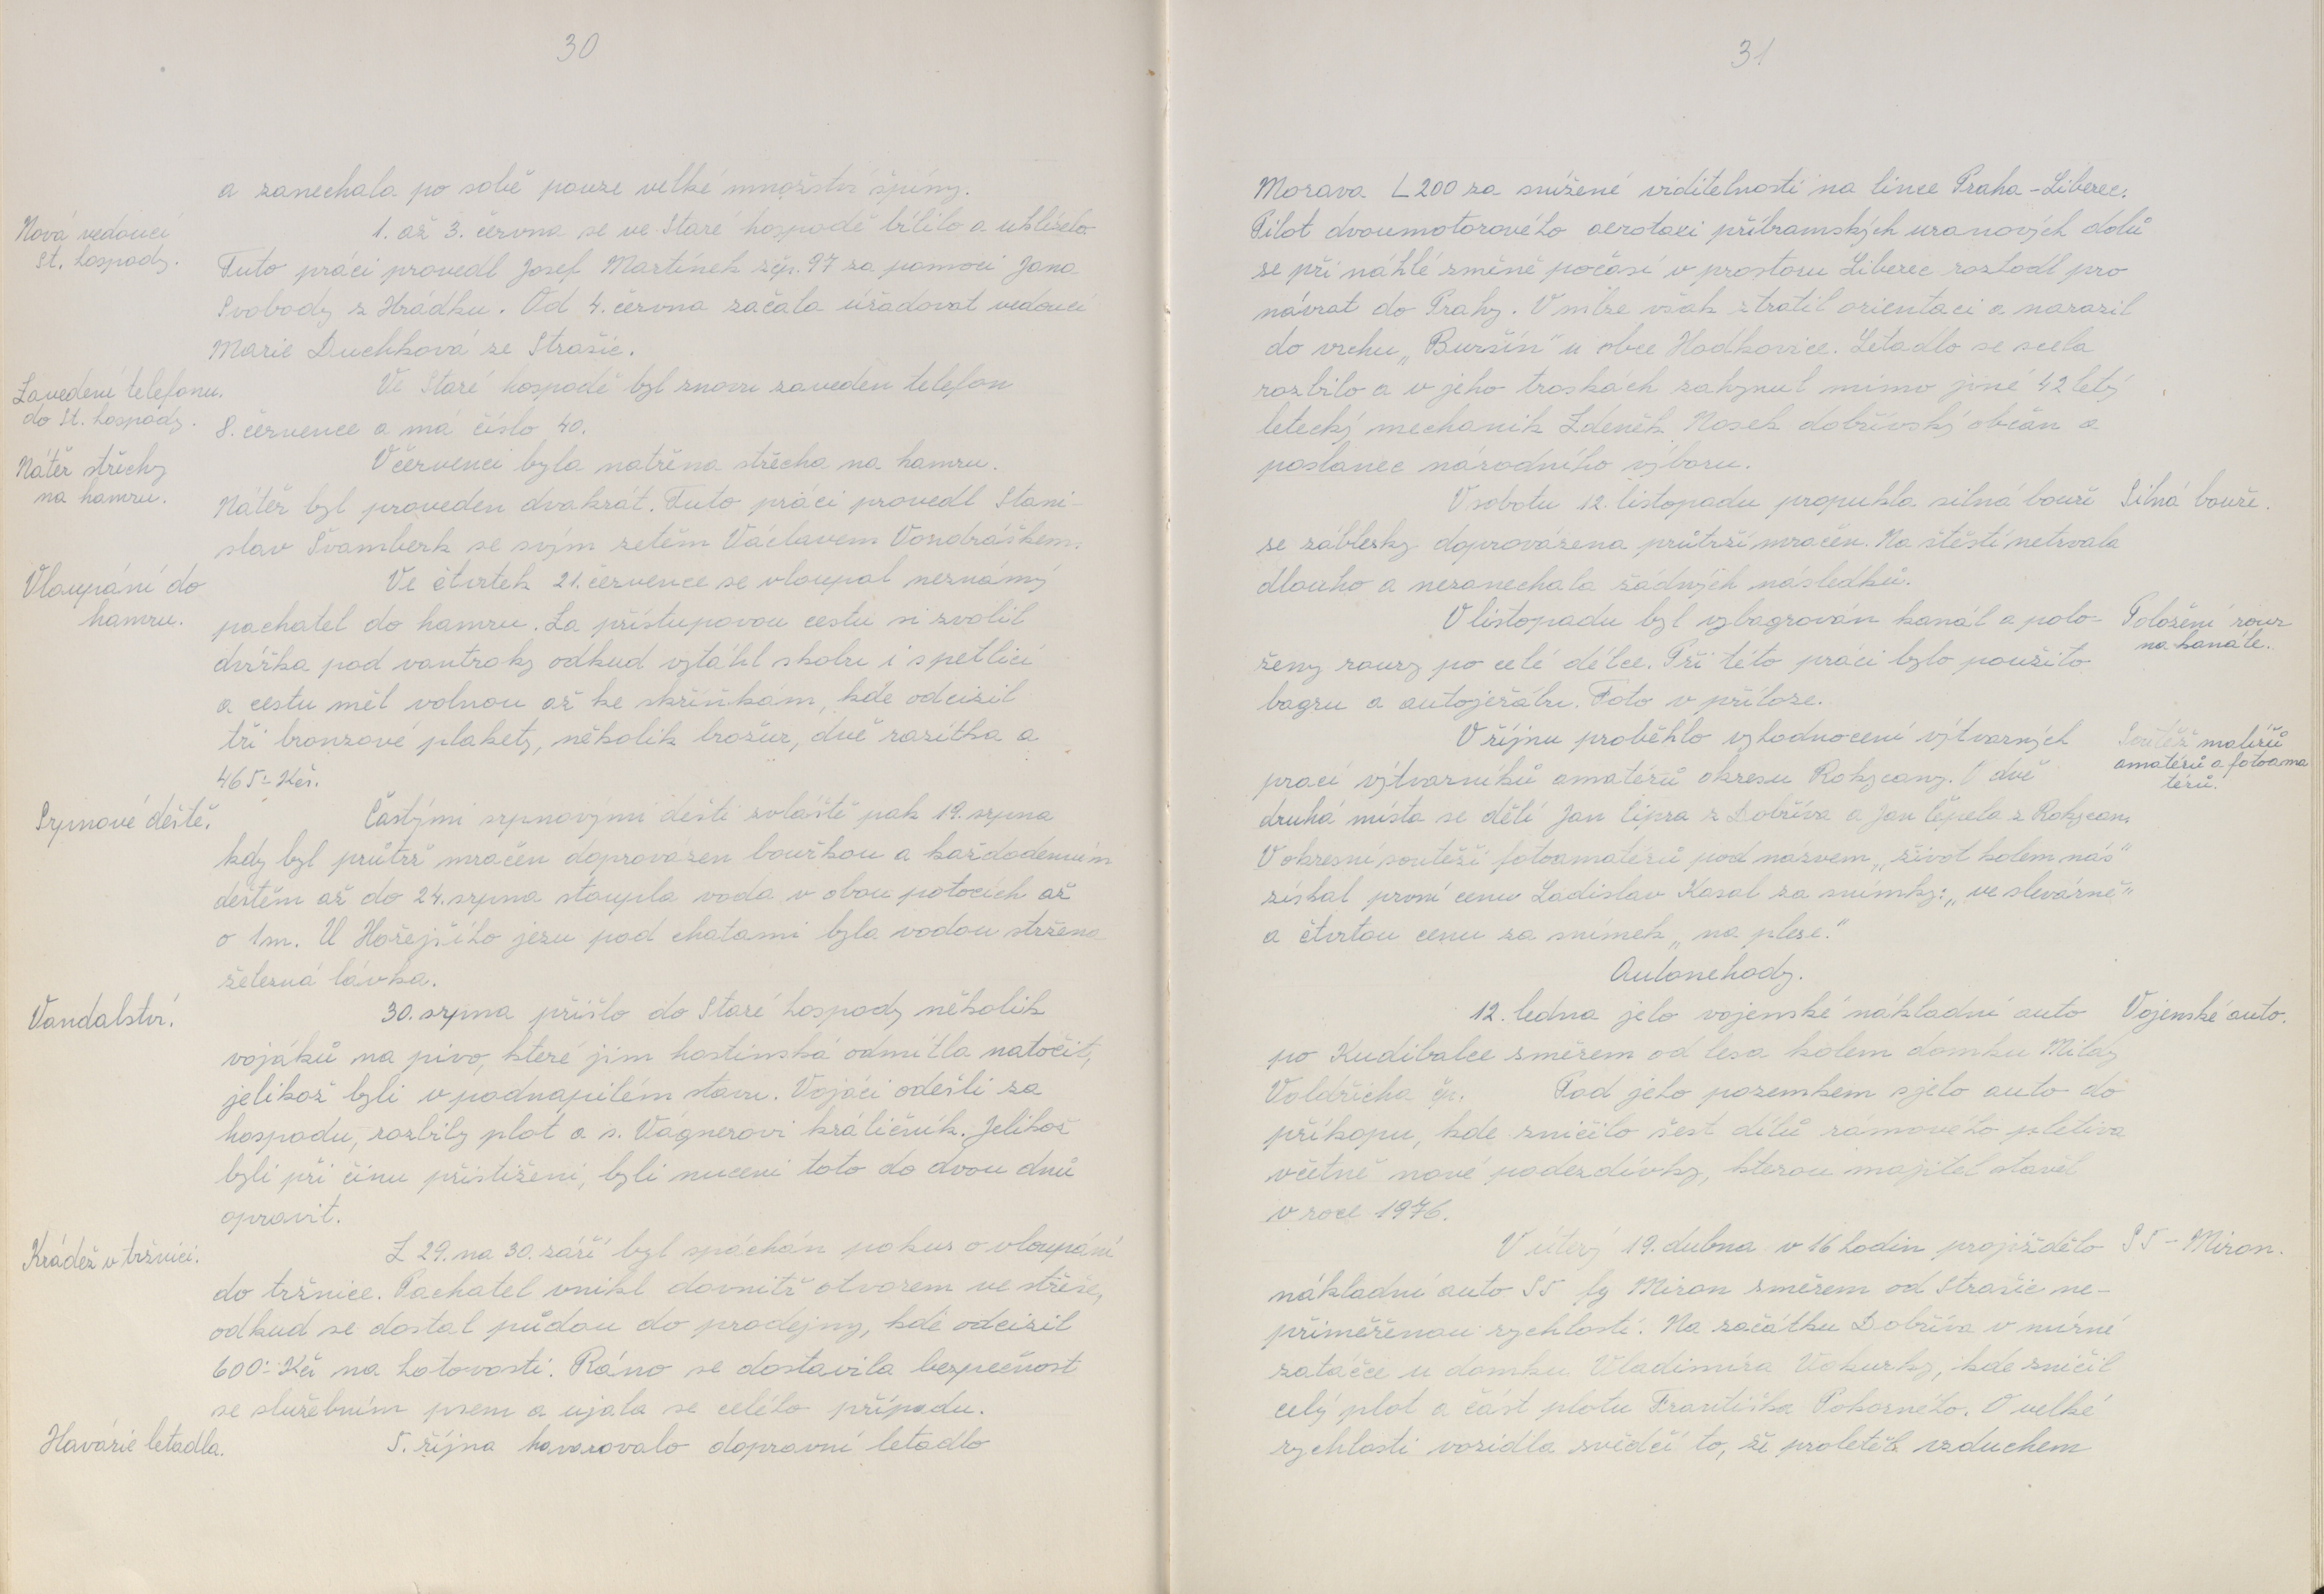 30
a zanechala po sobě pouze velké množství špíny.
Nová vedoucí
St. hospody.
1. až 3. června se ve Staré hospodě bílilo a uklízelo
Tuto práci provedl Josef Martínek z čp. 97 za pomoci Jana
Svobody z Hrádku. Od 4. června začala úřadovat vedoucí
Marie Duchková ze Strašic.
Zavedení telefonu
do St. hospody.
Ve Staré hospodě byl znovu zaveden telefon
8. července a má číslo 40.
Nátěr střechy
na hamru.
V červenci byla natřena střecha na hamru.
Nátěr byl proveden dvakrát. Tuto práci provedl Stani-
slav Švamberk se svým zetěm Václavem Vondráškem.
Vloupání do
hamru.
Ve čtvrtek 21. července se vloupal neznámý
pachatel do hamru. Za přístupovou cestu si zvolil
dvířka pod vantroky odkud vytáhl skobu i s petlicí
a cestu měl volnou až ke skříňkám, kde odcizil
tři bronzové plakety, několik brožur, dvě razítka a
465,- Kčs.
Srpnové deště.
Častými srpnovými dešti zvláště pak 19. srpna
kdy byl průtrž mračen doprovázen bouřkou a každodenním
deštěm až do 24. srpna stoupla voda v obou potocích až
o 1m. U Hořejšího jezu pod chatami byla vodou stržena
železná lávka.
Vandalství.
30. srpna přišlo do Staré hospody několik
vojáků na pivo, které jim hostinská odmítla natočit,
jelikož byli v podnapilém stavu. Vojáci odešli za
hospodu, rozbily plot a s. Vágnerovi králičník. Jelikož
byli při činu přistiženi, byli nuceni toto do dvou dnů
opravit.
Krádež v tržnici.
Z 29. na 30. září byl spáchán pokus o vloupání
do tržnice. Pachatel vnikl dovnitř otvorem ve střeše,
odkud se dostal půdou do prodejny, kde odcizil
600,- Kčs na hotovosti. Ráno se dostavila bezpečnost
se služebním psem a ujala se celého případu.
Havárie letadla.
5. října havarovalo dopravní letadlo
31
Morava L 200 za snížené viditelnosti na lince Praha - Liberec.
Pilot dvoumotorového aerotaxi příbramských uranových dolů
se při náhlé změně počasí v prostoru Liberec rozhodl pro
návrat do Prahy. V mlze však ztratil orientaci a narazil
do vrchu „Buršín" u obce Hodkovice. Letadlo se zcela
rozbilo a v jeho troskách zahynul mimo jiné 42 letý
letecký mechanik Zdeněk Nosek dobřívský občan a
poslanec národního výboru.
V sobotu 12. listopadu propukla silná bouře
Silná bouře.
se záblesky doprovázena průtrží mračen. Na štěstí netrvala
dlouho a nezanechala žádných následků.
V listopadu byl vybagrován kanál a polo-
Položení rour
na kanále.
ženy roury po celé délce. Při této práci bylo použito
bagru a autojeřábu. Foto v příloze.
V říjnu proběhlo vyhodnocení výtvarných
Soutěž malířů
amatérů a fotoama
térů.
prací výtvarníků amatérů okresu Rokycany. O dvě
druhá místa se dělí Jan Cipra z Dobříva a Jan Čepela z Rokycan.
V okresní soutěži fotoamatérů pod názvem „život kolem nás"
získal první cenu Ladislav Kasal za snímky: „ve slevárně"
a čtvrtou cenu za snímek „na plese."
Autonehody.
12. ledna jelo vojenské nákladní auto
Vojenské auto.
po Kudibalce směrem od lesa kolem domku Milady
Voldřicha čp.     Pod jeho pozemkem sjelo auto do
příkopu, kde zničilo šest dílů rámového pletiva
včetně nové podezdívky, kterou majitel stavěl
v roce 1976.
V úterý 19. dubna v 16 hodin projíždělo
S5 - Miron.
nákladní auto S5 fy Miron směrem od Strašic ne-
přiměřenou rychlostí. Na začátku Dobříva v mírné
zatáčce u domku Vladimíra Vokurky, kde zničil
celý plot a část plotu Františka Pokorného. O velké
rychlosti vozidla svědčí to, že proletěl vzduchem